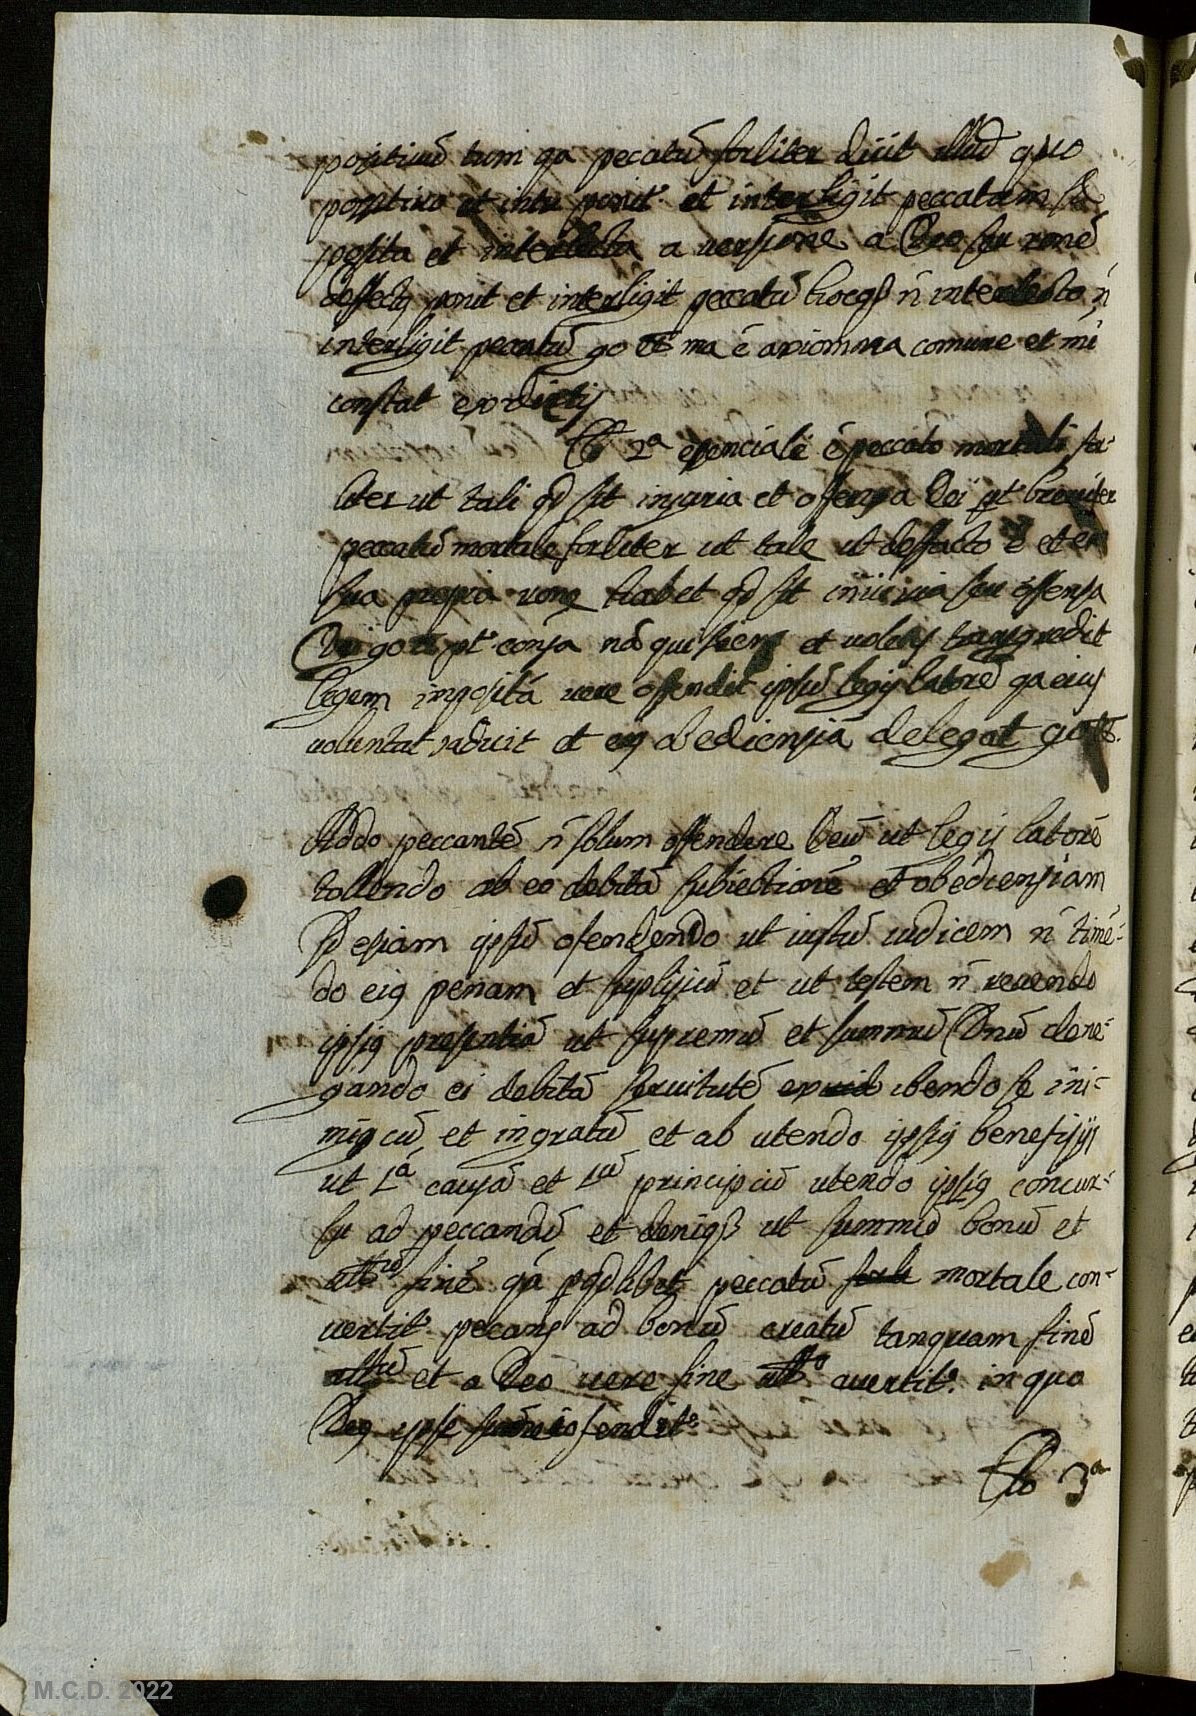 positiuũ tum qa pecatũ forliter dicit illud quo
positiuo et intu ponit.ͬ et interligit peccatum
posita et interlecta a uersione a Deo seu ronẽ
deffecq ponit et interligit peccatũ hocq n̄ interlecto n̄
interligit pecatũ go ma ẽ axiomma comune et mi
constat ex dictis
Clo 2ª esenciale ẽ peccato mortali for-
liter ut tali qd sit injuria et ofensa Dei pt breuiter
peccatũ mortale forliter ut tale ut deffacto ẽ et ex
sua propia rone habet qd sit iniuria seu offensa
Dei go pt consa nã qui siens et uolens transgredit
legem impositã uere offendit ipsũ legis latorẽ qa eius
voluntat et ei obediensiã delegat go
Addo peccantẽ n̄ solum offendere Deũ ut legis latorẽ
tollendo ab eo debitã subiectionẽ et obediensiam
sd esiam ipsũ ofendendo ut iustũ iudicem n̄ timẽ-
do eiq penam et suplisiũ et ut testem n̄ reuendo
ipsiq presentiã ut supremũ et summũ Dnũ dene-
gando ei debitã seruitutẽ ex ibendo se ini-
miqcũ et ingratũ et ab utendo ipsiq benefisijs
ut 1ã causã et 1ũ principiũ utendo ipsiq concur-
su ad peccandũ et deniqꝫ ut summũ bonũ et
finẽ qa p qdlibet peccatũ mortale con-
uertit.ͬ pecans ad bonũ creatũ tanquam finẽ
et a Deo uere fine auertit.ͬ in quo
Deq ipse ofendit.ͬ
Clo 3ª
M.C.D. 2022